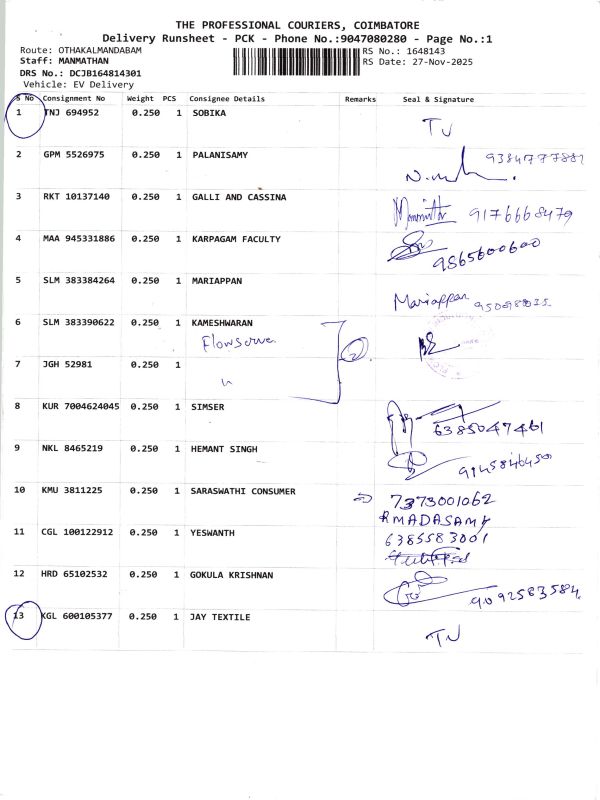 THE PROFESSIONAL COURIERS, COIMBATORE
Delivery Runsheet - PCK - Phone No.:9047080280 - Page No.:1
Route: OTHAKALMANDABAM RS No.: 1648143
Staff: MANMATHAN RS Date: 27-Nov-2025
DRS No.: DCJB164814301
Vehicle: EV Delivery
S No Consignment No Weight PCS Consignee Details Remarks Seal & Signature
1 TNJ 694952 0.250 1 SOBIKA
2 GPM 5526975 0.250 1 PALANISAMY
3 RKT 10137140 0.250 1 GALLI AND CASSINA 9176668479
4 MAA 945331886 0.250 1 KARPAGAM FACULTY 9865600600
5 SLM 383384264 0.250 1 MARIAPPAN Mariappan
6 SLM 383390622 0.250 1 KAMESHWARAN
Flowserve
7 JGH 52981 0.250 1
8 KUR 7004624045 0.250 1 SIMSER 6385047461
9 NKL 8465219 0.250 1 HEMANT SINGH
10 KMU 3811225 0.250 1 SARASWATHI CONSUMER 7373001062
RMADASAMY
11 CGL 100122912 0.250 1 YESWANTH 6385583001
12 HRD 65102532 0.250 1 GOKULA KRISHNAN 9092583584
13 KGL 600105377 0.250 1 JAY TEXTILE